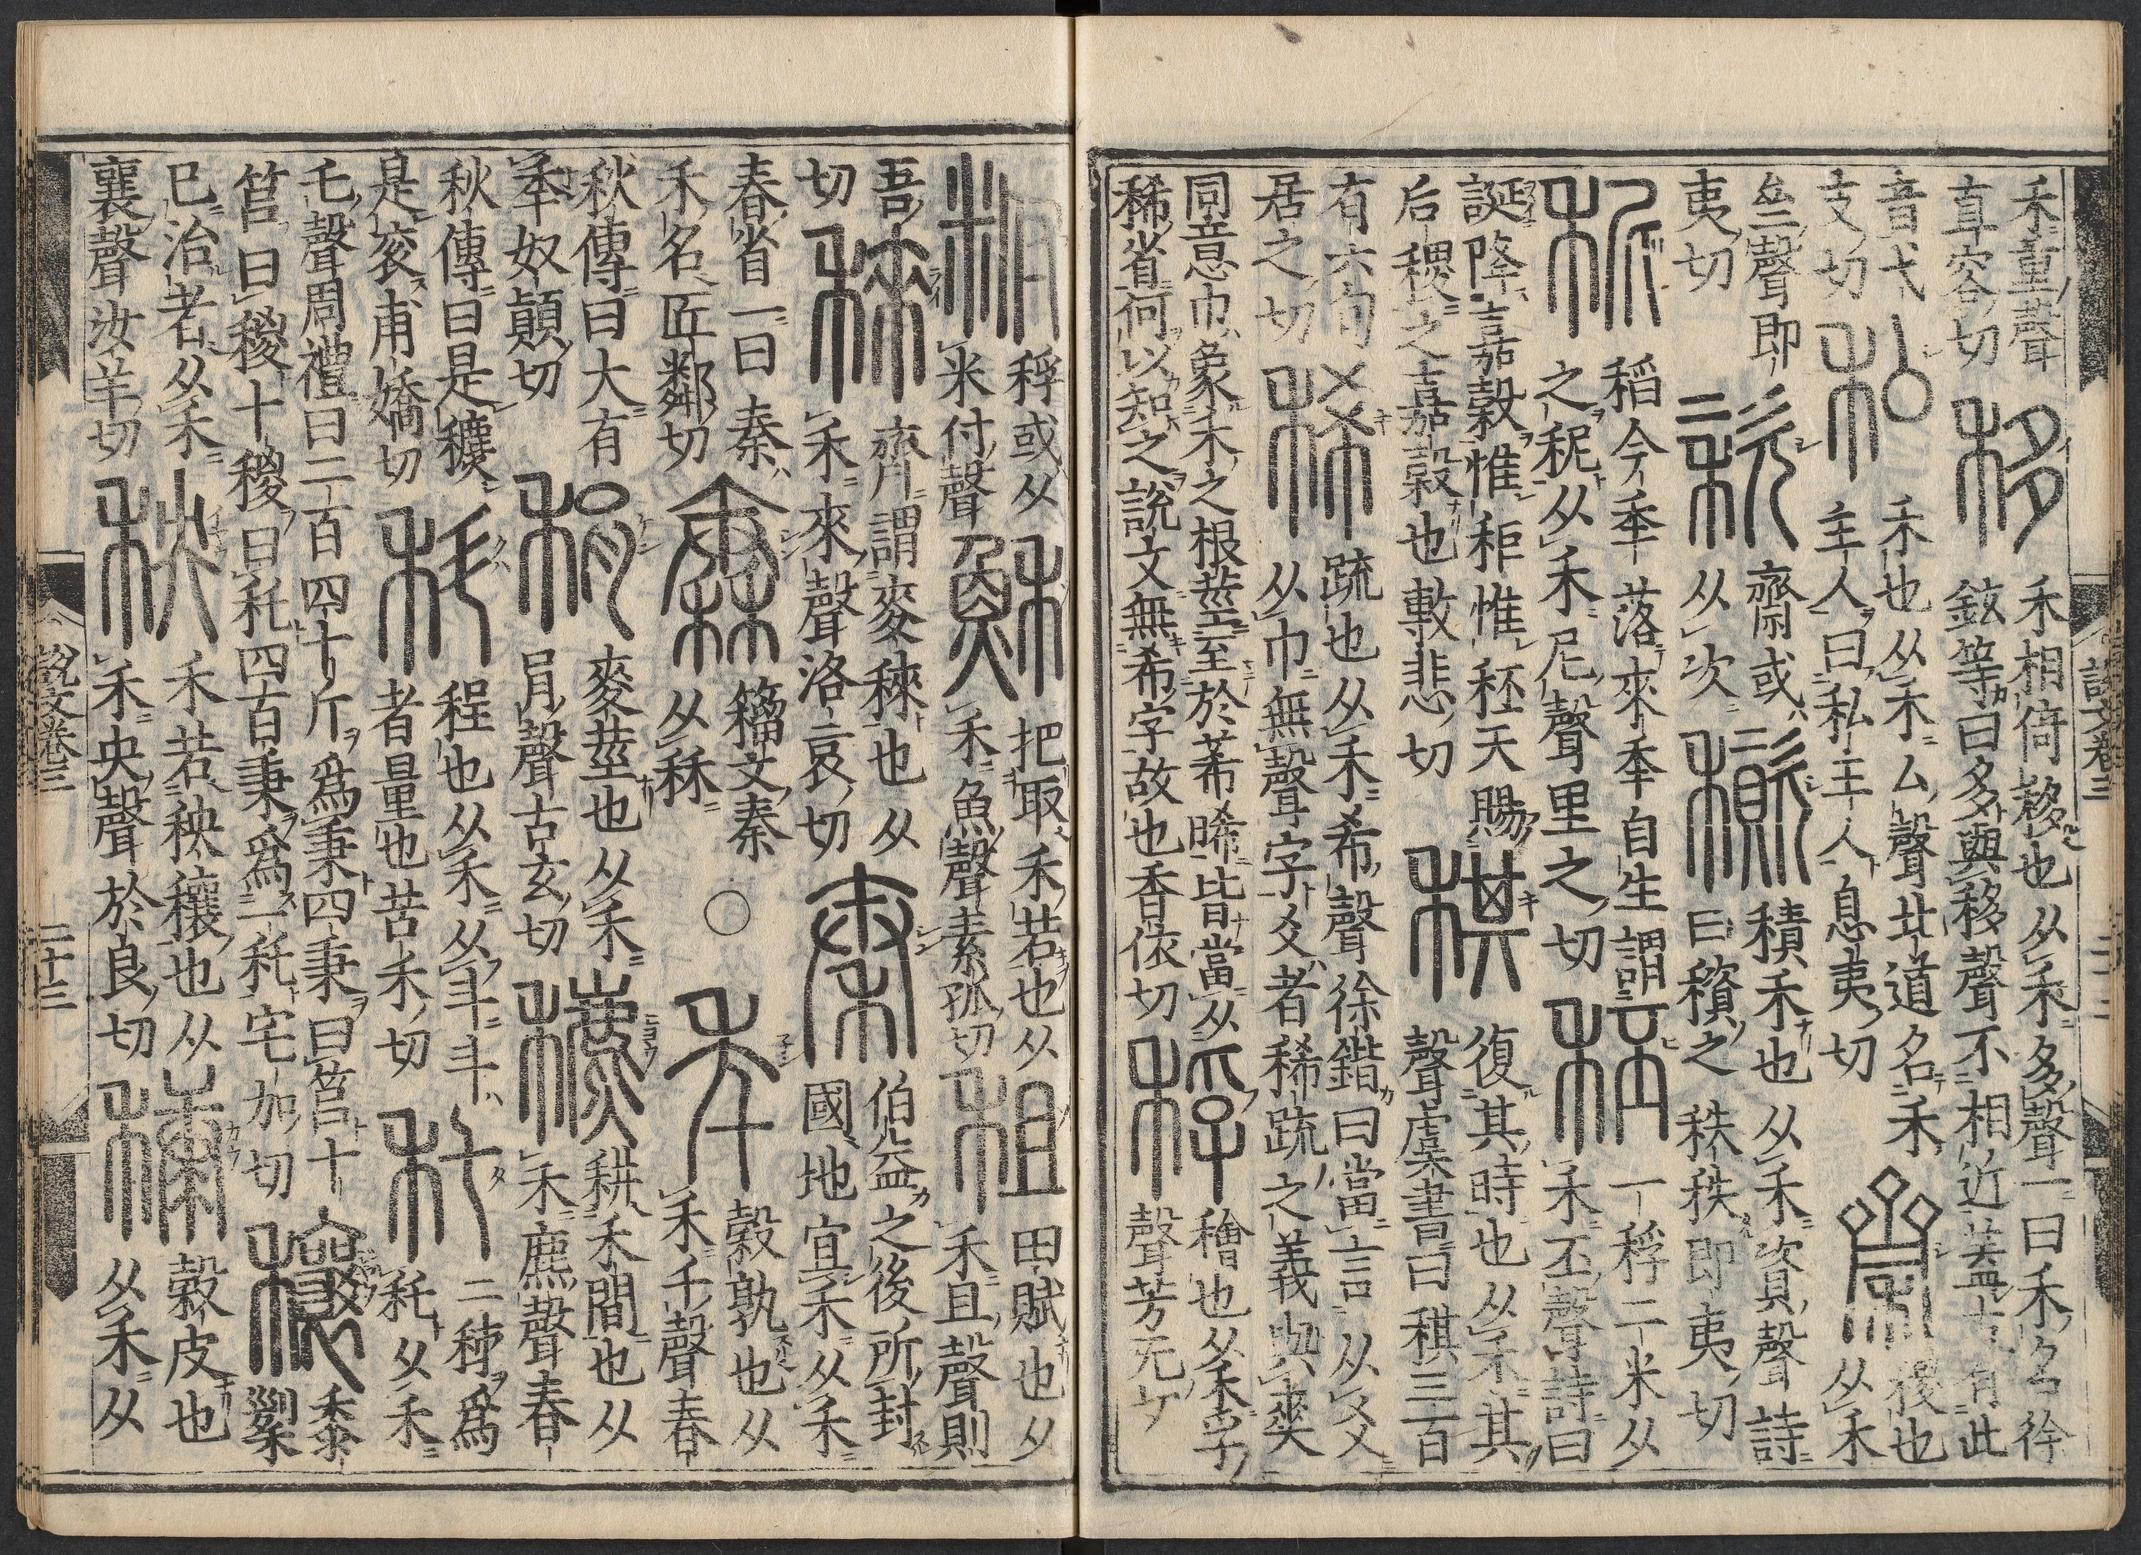 禾重聲
直容切
移
禾相倚移也从禾多聲一曰禾名徐
鉉等曰多與移聲不相近蓋古有此
音弋
支切
私
禾也从禾厶聲北道名禾
主人曰私主人 息夷切
齋
稷也
从禾
亝聲即
夷切
秶
齋或
从次
積禾也从禾資聲詩
曰穦之 秩秩即夷切
秜
稻今秊落來秊自生謂
之秜从禾尼聲里之切
秠
一稃二米从
禾丕聲詩曰
誕降嘉穀惟秬惟秠天賜
后稷之嘉穀也敷悲切
稘
復其時也从禾其
聲虞書曰稘三百
有六旬
居之切
稀
疏也从禾希聲徐鍇曰當言从爻
从巾無聲字爻者稀疏之義與爽
同意巾象禾之根莖至於莃晞皆當从
稀省何以知之說文無希字故也香依切
稃
䅳也从禾孚
聲芳无切
說文卷三 二十二
稃或从
米付聲
穌
把取禾若也从
禾魚聲素孤切
租
田賦也从
禾且聲則
吾
切
䅘
齊謂麥䅘也从
禾來聲洛哀切
秦
伯益之後所封
國地宜禾从禾
春省一曰秦
禾名匠鄰切
籀文秦
从秝
○
秊
穀孰也从
禾千聲春
秋傳曰大有
秊奴顚切
麥莖也从禾
肙聲古玄切
穮
耕禾間也从
禾麃聲春
秋傳曰是穮
是袞甫嬌切
程也从禾从斗斗
者量也苦禾切
秅
二秭爲
秅从禾
乇聲周禮曰二百四十斤爲秉四秉曰筥十
筥曰稯十稯曰秅四百秉爲一秅宅加切
黍
巳治者从禾
襄聲汝羊切
秧
禾若秧穰也从
禾央聲於良切
穅
穀皮也
从禾从
說文卷三 二十三